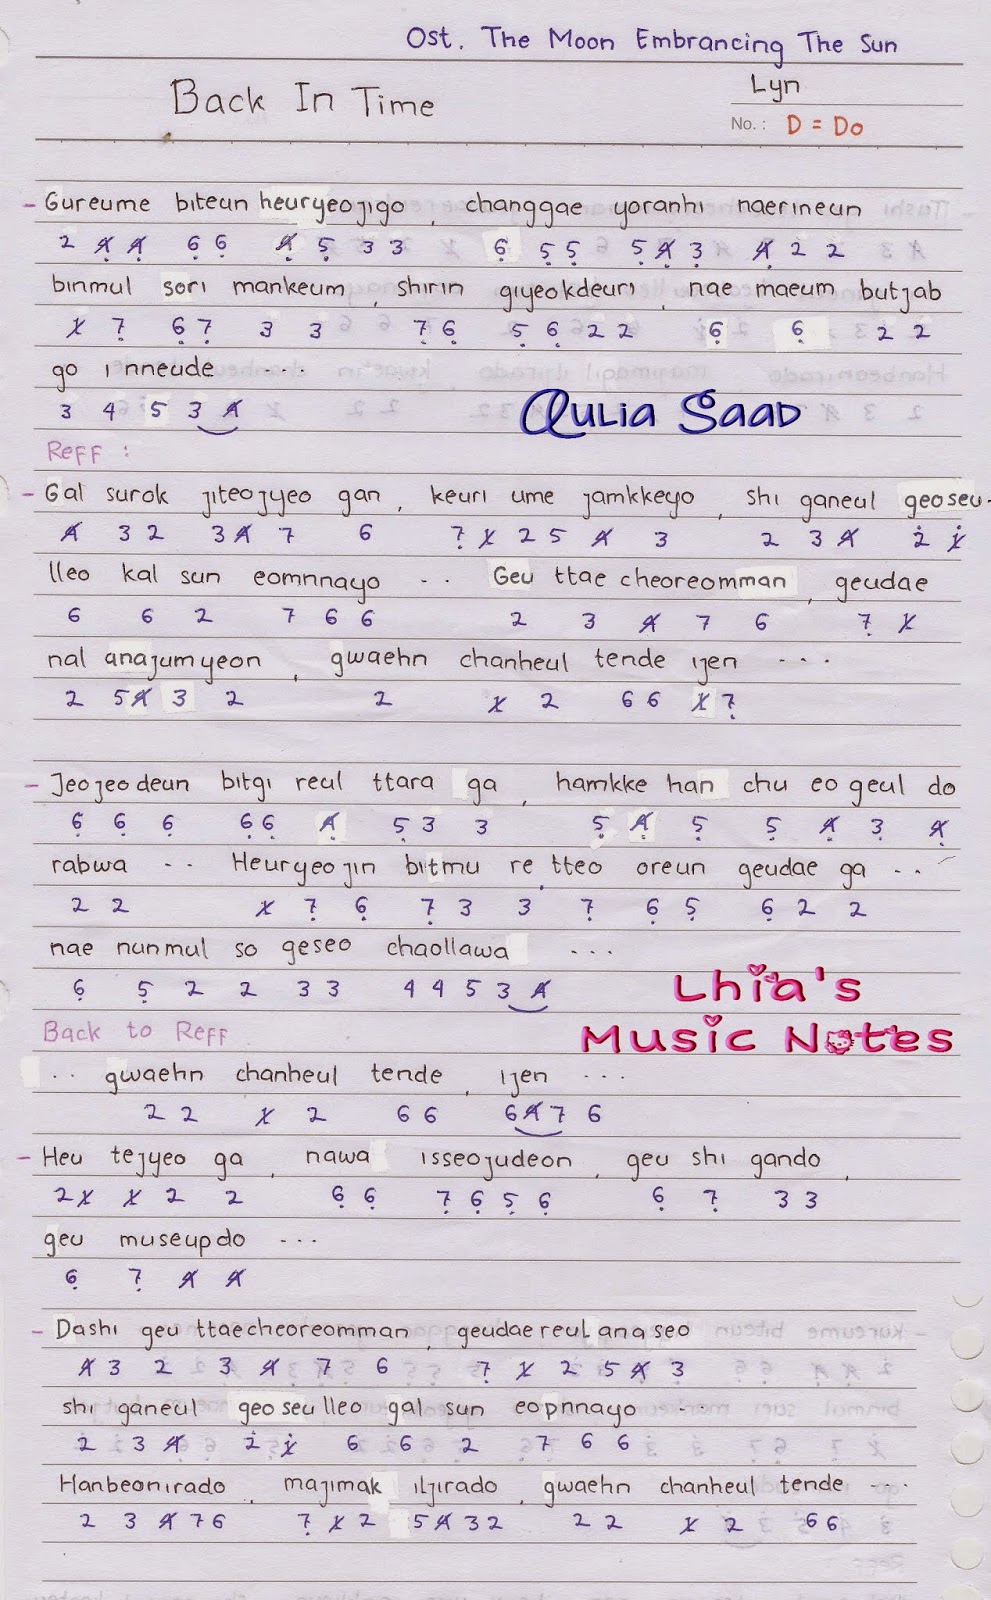 Ost. The Moon Embrancing The Sun
Back In Time
Lyn
No. : D = Do
- Gureume biteun heuryeojigo , changgae yoranhi naerineun
2 4̸ 4̸ 6 6 4̸ 5 3 3 6 5 5 5 4̸ 3 4̸ 2 2
binmul sori mankeum , shirin giyeokdeuri , nae maeum butjab
1̸ 7̣ 6̣ 7̣ 3 3 7̣ 6̣ 5̣ 6̣ 2 2 6̣ 6̣ 2 2
go inneude ....
3 4 5 3 4̸
Qulia Saad
Reff :
- Gal surok jiteojyeo gan , keuri ume jamkkeyo , shi ganeul geoseu-
4̸ 3 2 3 4̸ 7 6 7̣ 1̸ 2 5 4̸ 3 2 3 4̸ 2̇ 1̸̇
lleo kal sun eomnnayo .. Geu ttae cheoreomman , geudae
6 6 2 7 6 6 2 3 4̸ 7 6 7̣ 1̸
nal anajumyeon , gwaehn chanheul tende ijen ...
2 5 4̸ 3 2 2 1̸ 2 6 6 1̸ 7̣
- Jeojeodeun bitgi reul ttara ga , hamkke han chu eo geul do
6̣ 6̣ 6̣ 6̣ 6̣ 4̸̣ 5̣ 3 3 5̣ 4̸̣ 5̣ 5̣ 4̸̣ 3̣ 4̸̣
rabwa .. Heuryeojin bitmu re , tteo oreun geudae ga ..
2 2 1̸ 7̣ 6̣ 7̣ 3 3 7̣ 6̣ 5̣ 6̣ 2 2
nae nunmul so geseo chaollawa ...
6̣ 5̣ 2 2 3 3 4 4 5 3 4̸
Lhia's
Music Notes
Back to Reff
.. gwaehn chanheul tende , ijen ...
2 2 1̸ 2 6 6 6 4̸ 7 6
- Heu tejyeo ga , nawa isseojudeon , geu shi gando ,
2 1̸ 1̸ 2 2 6̣ 6̣ 7̣ 6̣ 5̣ 6̣ 6̣ 7̣ 3 3
geu museupdo ...
6̣ 7̣ 4̸ 4̸
- Dashi geu ttaecheoreomman , geudae reul anaseo
4̸ 3 2 3 4̸ 7 6 7̣ 1̸ 2 5 4̸ 3
shi ganeul geoseulleo gal sun eopnnayo ...
2 3 4̸ 2̇ 1̸̇ 6 6 2 7 6 6
Hanbeonirado , majimak iljirado , gwaehn chanheul tende ...
2 3 4̸ 7 6 7̣ 1̸ 2 5 4̸ 3 2 2 2 1̸ 2 6 6